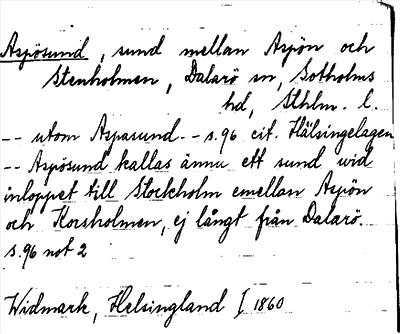 Aspösund, sund mellan Aspön och
Stenholmen, Dalarö sn, Sotholms
hd, Sthlm. l.
-- utom Aspasund. -- s. 96 cit. Hälsingelagen
-- Aspösund kallas ännu ett sund wid
inloppet till Stockholm emellan Aspön
och Korsholmen, ej långt från Dalarö.
s. 96 not 2
Widmark, Helsingland I 1860